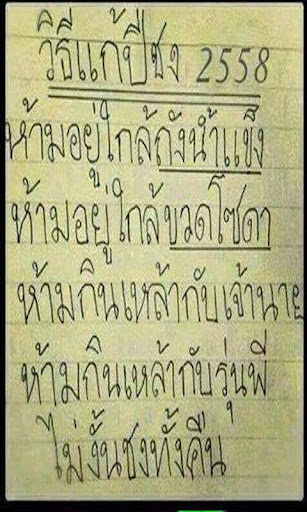 วิธีแก้ปีชง 2558
ห้ามอยู่ใกล้ถังน้ำแข็ง
ห้ามอยู่ใกล้ขวดโซดา
ห้ามกินเหล้ากับเจ้านาย
ห้ามกินเหล้ากับรุ่นพี่
ไม่งั้นชงทั้งคืน